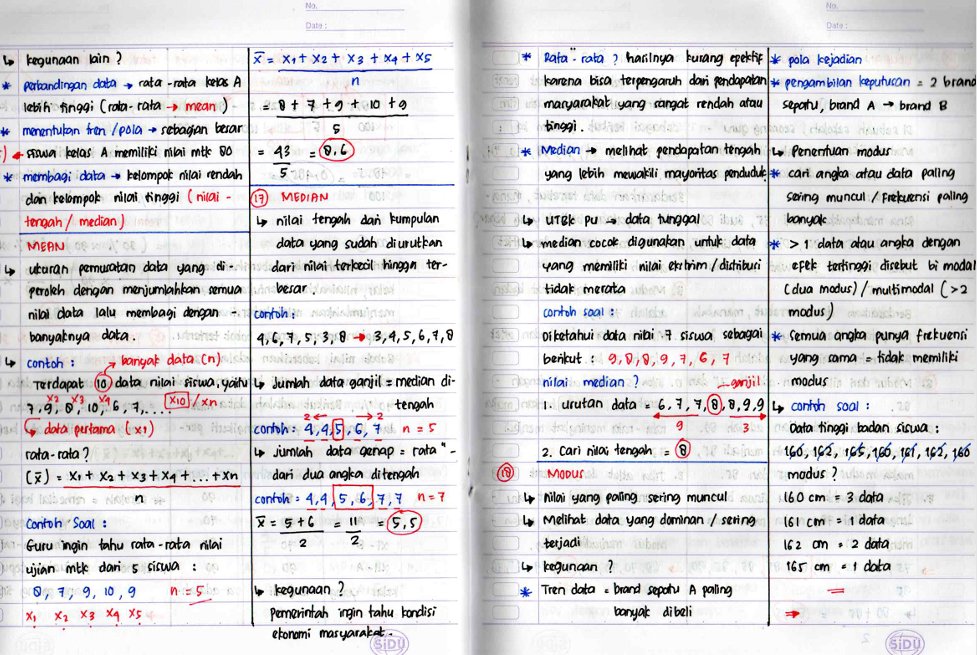 No.
Date :
↳ kegunaan lain ?
* perbandingan data → rata-rata kelas A
lebih tinggi (rata-rata → mean)
* menentukan tren / pola → sebagian besar
siswa kelas A memiliki nilai mtk 80
* membagi data → kelompok nilai rendah
dan kelompok nilai tinggi (nilai -
tengah / median)
MEAN
↳ ukuran pemusatan data yang di-
peroleh dengan menjumlahkan semua
nilai data lalu membagi dengan -
banyaknya data.
↳ contoh : banyak data (n)
Terdapat 10 data nilai siswa, yaitu
x2 x3 x4 x10 / xn
7, 9, 8, 10, 6, 7, ....
↳ data pertama (x1)
rata-rata ?
(x̄) = x1 + x2 + x3 + x4 + ... + xn
n
Contoh Soal :
Guru ingin tahu rata-rata nilai
ujian mtk dari 5 siswa :
8, 7, 9, 10, 9 n = 5
x1 x2 x3 x4 x5
x̄ = x1 + x2 + x3 + x4 + x5
n
= 8 + 7 + 9 + 10 + 9
5
= 43 = 8,6
5
17 MEDIAN
↳ nilai tengah dari kumpulan
data yang sudah diurutkan
dari nilai terkecil hingga ter-
besar.
contoh :
4, 6, 7, 5, 3, 8 → 3, 4, 5, 6, 7, 8
↳ Jumlah data ganjil = median di-
tengah
2 ← → 2
contoh : 4, 4, 5, 6, 7 n = 5
↳ jumlah data genap = rata"
dari dua angka ditengah
contoh = 4, 4, 5, 6, 7, 7 n = 7
x̄ = 5 + 6 = 11 = 5,5
2 2
↳ kegunaan ?
pemerintah ingin tahu kondisi
ekonomi masyarakat.
SiDU
No.
Date :
* Rata"-rata ? hasilnya kurang epektif
karena bisa terpengaruh dari pendapatan
masyarakat yang sangat rendah atau
tinggi.
* Median → melihat pendapatan tengah
yang lebih mewakili mayoritas penduduk
↳ UTBK PU → data tunggal
↳ median cocok digunakan untuk data
yang memiliki nilai ekstrim / distribusi
tidak merata
contoh soal :
Diketahui data nilai 7 siswa sebagai
berikut : 9, 8, 8, 9, 7, 6, 7
nilai median ? ganjil
1. urutan data = 6, 7, 7, 8, 8, 9, 9
9 3
2. Cari nilai tengah = 8
18 MODUS
↳ Nilai yang paling sering muncul
↳ Melihat data yang dominan / sering
terjadi
↳ kegunaan ?
* Tren data = brand sepatu A paling
banyak dibeli
* pola kejadian
* pengambilan keputusan = 2 brand
sepatu, brand A → brand B
↳ Penentuan modus
* cari angka atau data paling
sering muncul / frekuensi paling
banyak
* > 1 data atau angka dengan
efek tertinggi disebut bi modal
(dua modus) / multimodal (>2
modus)
* Semua angka punya frekuensi
yang sama = tidak memiliki
modus
↳ contoh soal :
Data tinggi badan siswa :
160, 162, 165, 160, 161, 162, 160
modus ?
160 cm = 3 data
161 cm = 1 data
162 cm = 2 data
165 cm = 1 data
=
→
2
SiDU